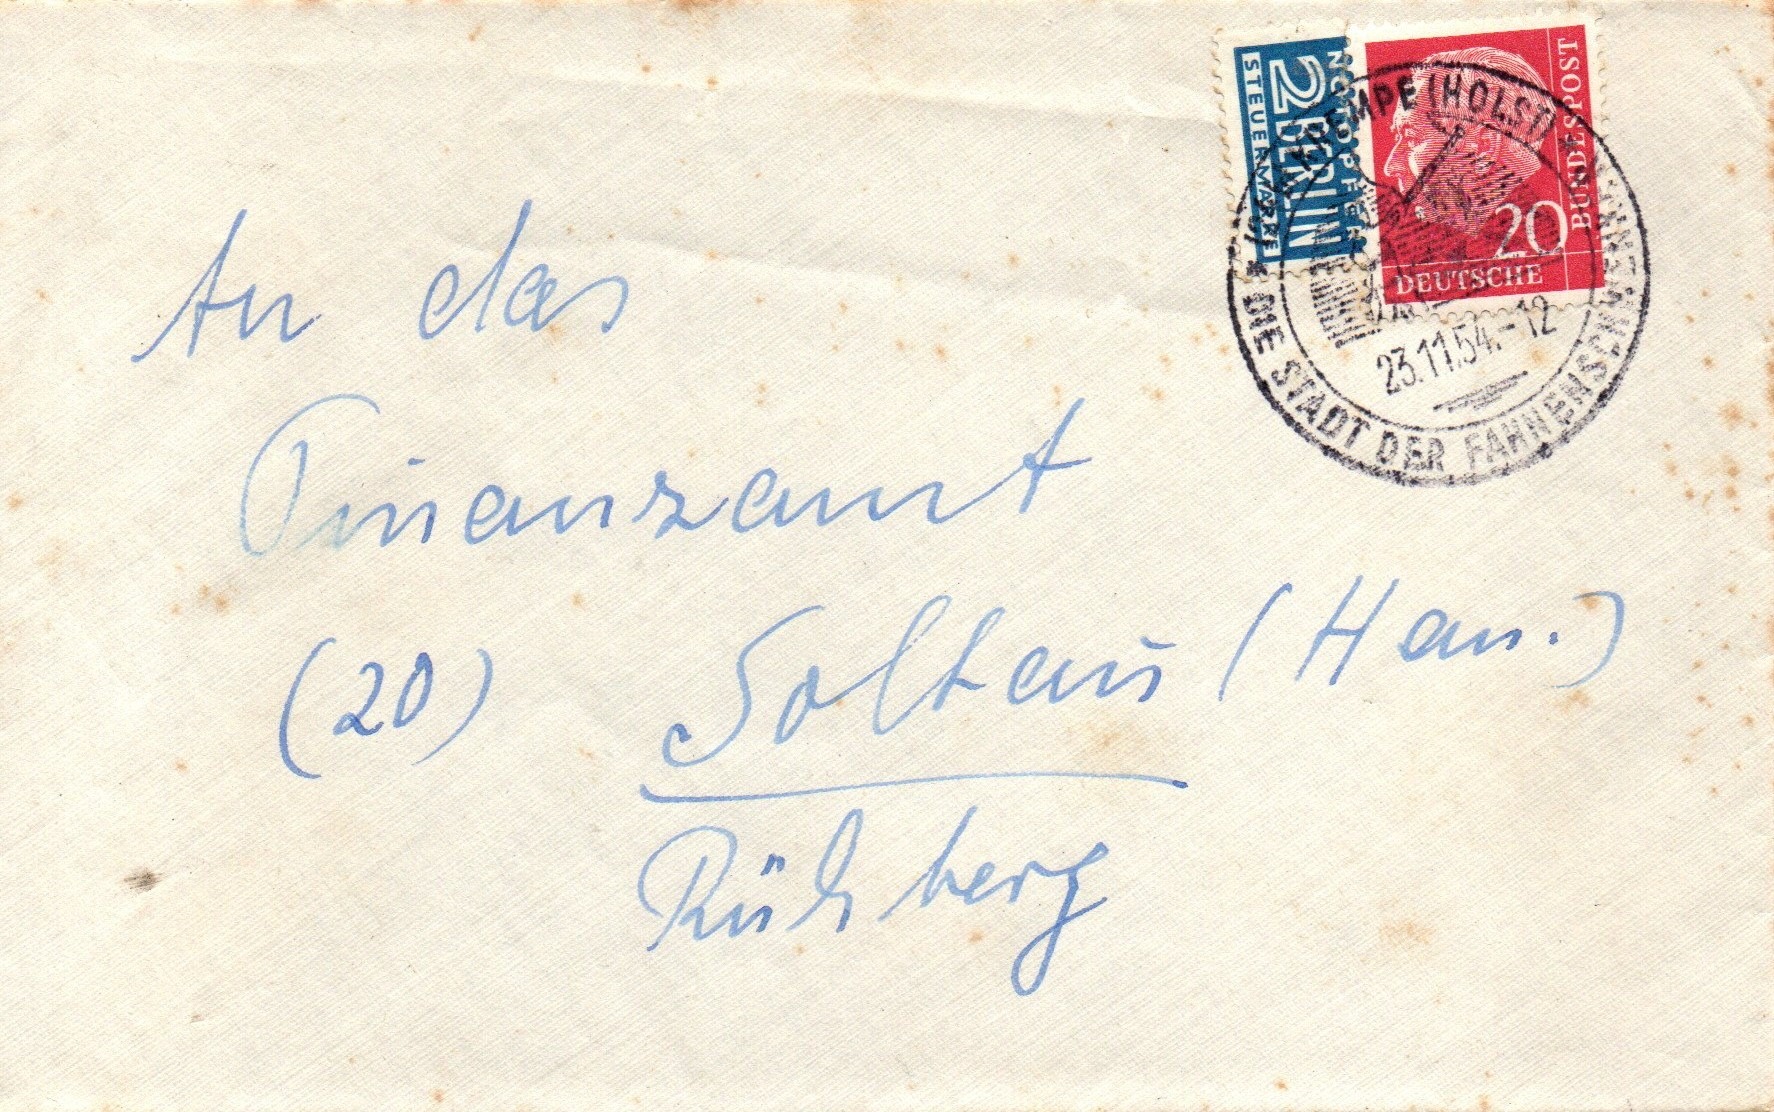 NOTOPFER
2 BERLIN
STEUERMARKE
DEUTSCHE
BUNDESPOST
20
KREMPE (HOLST)
23.11.54.-12
* DIE STADT DER FAHNENSCHWENKER *
An das
Finanzamt
(20) Soltau (Han.)
Rühberg